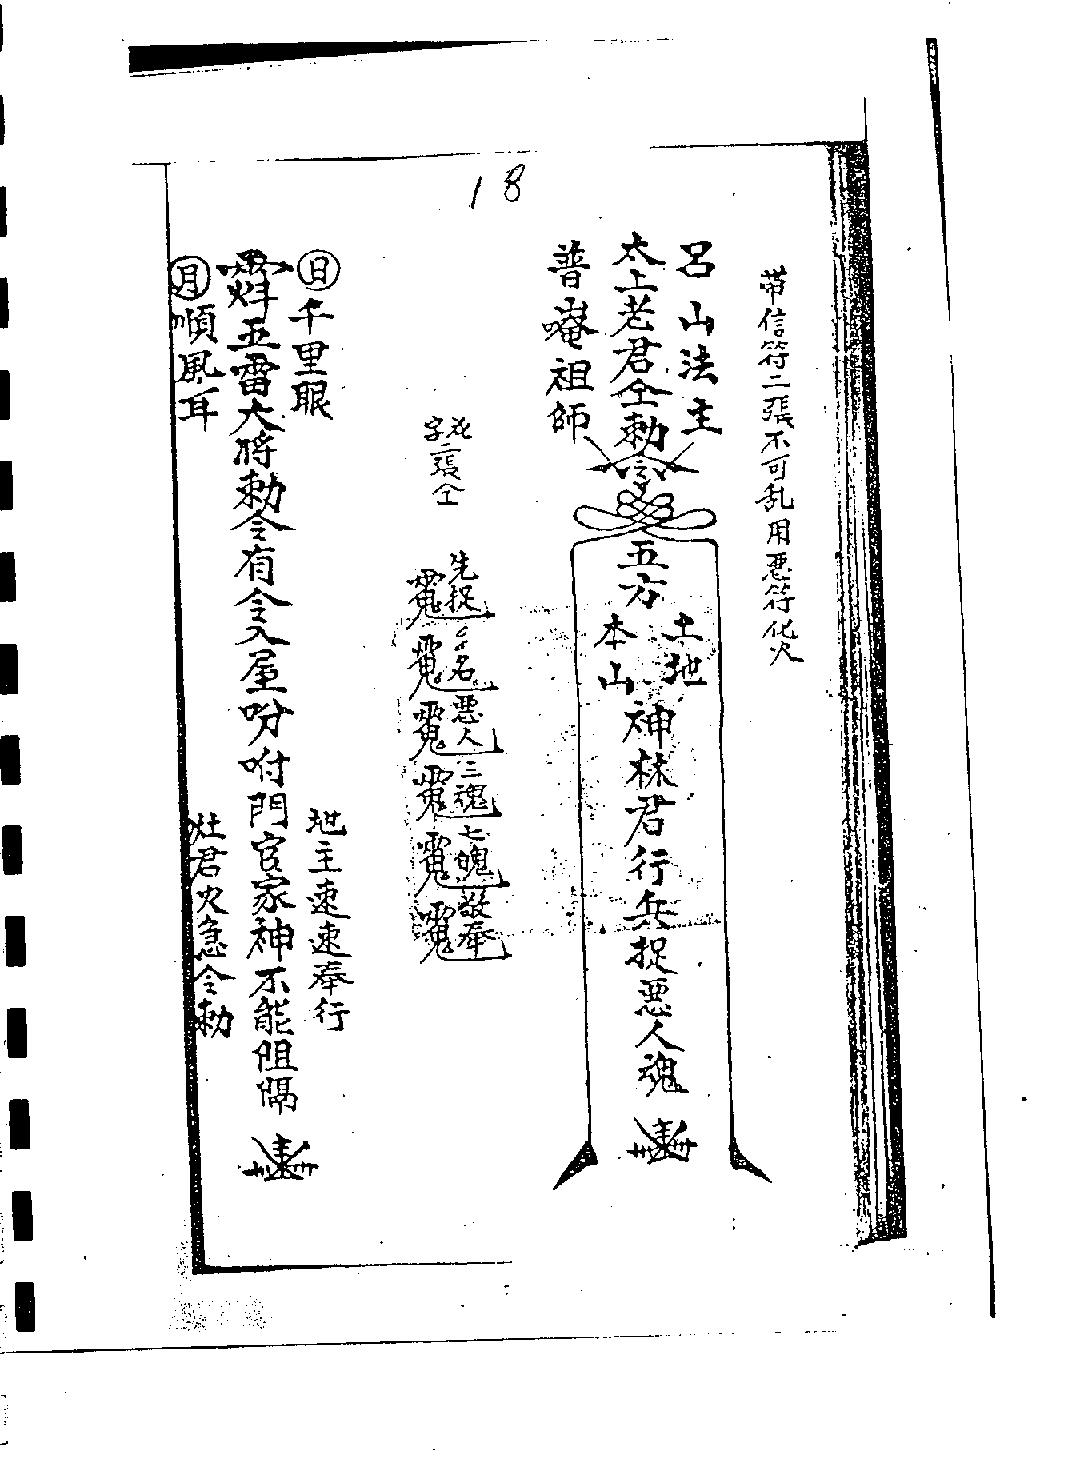 18
帶信符二張不可乱用惡符化火
呂山法主
太上老君仝勅令
普唵祖師
五方
土地
本山
神林君行兵捉惡人魂
花字
三張仝
先捉
名
惡人
三魂
七魄
敬奉
日千里眼
五雷大將勅令有令入屋吩咐門官家神不能阻隔
月順風耳
地主速速奉行
灶君火急令勅